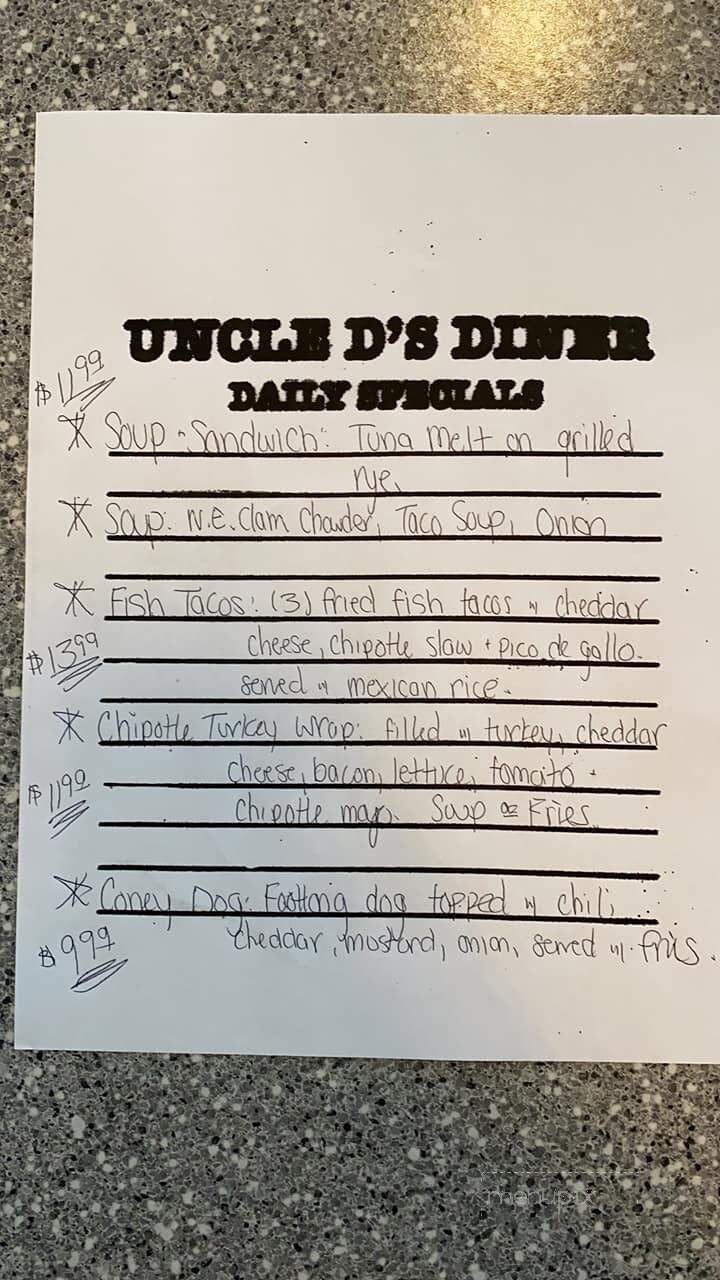 UNCLE D'S DINER
DAILY SPECIALS
$11.99
* Soup + Sandwich: Tuna melt on grilled
rye.
* Soup: N.E. Clam Chowder, Taco Soup, Onion
* Fish Tacos: (3) fried fish tacos w/ cheddar
$13.99 cheese, chipotle slaw + pico de gallo.
served w/ mexican rice.
* Chipotle Turkey Wrap: filled w/ turkey, cheddar
$11.99 cheese, bacon, lettuce, tomato +
chipotle mayo. Soup or Fries.
* Coney Dog: Footlong dog topped w/ chili,
$9.99 cheddar, mustard, onion, served w/ fries.
menupix